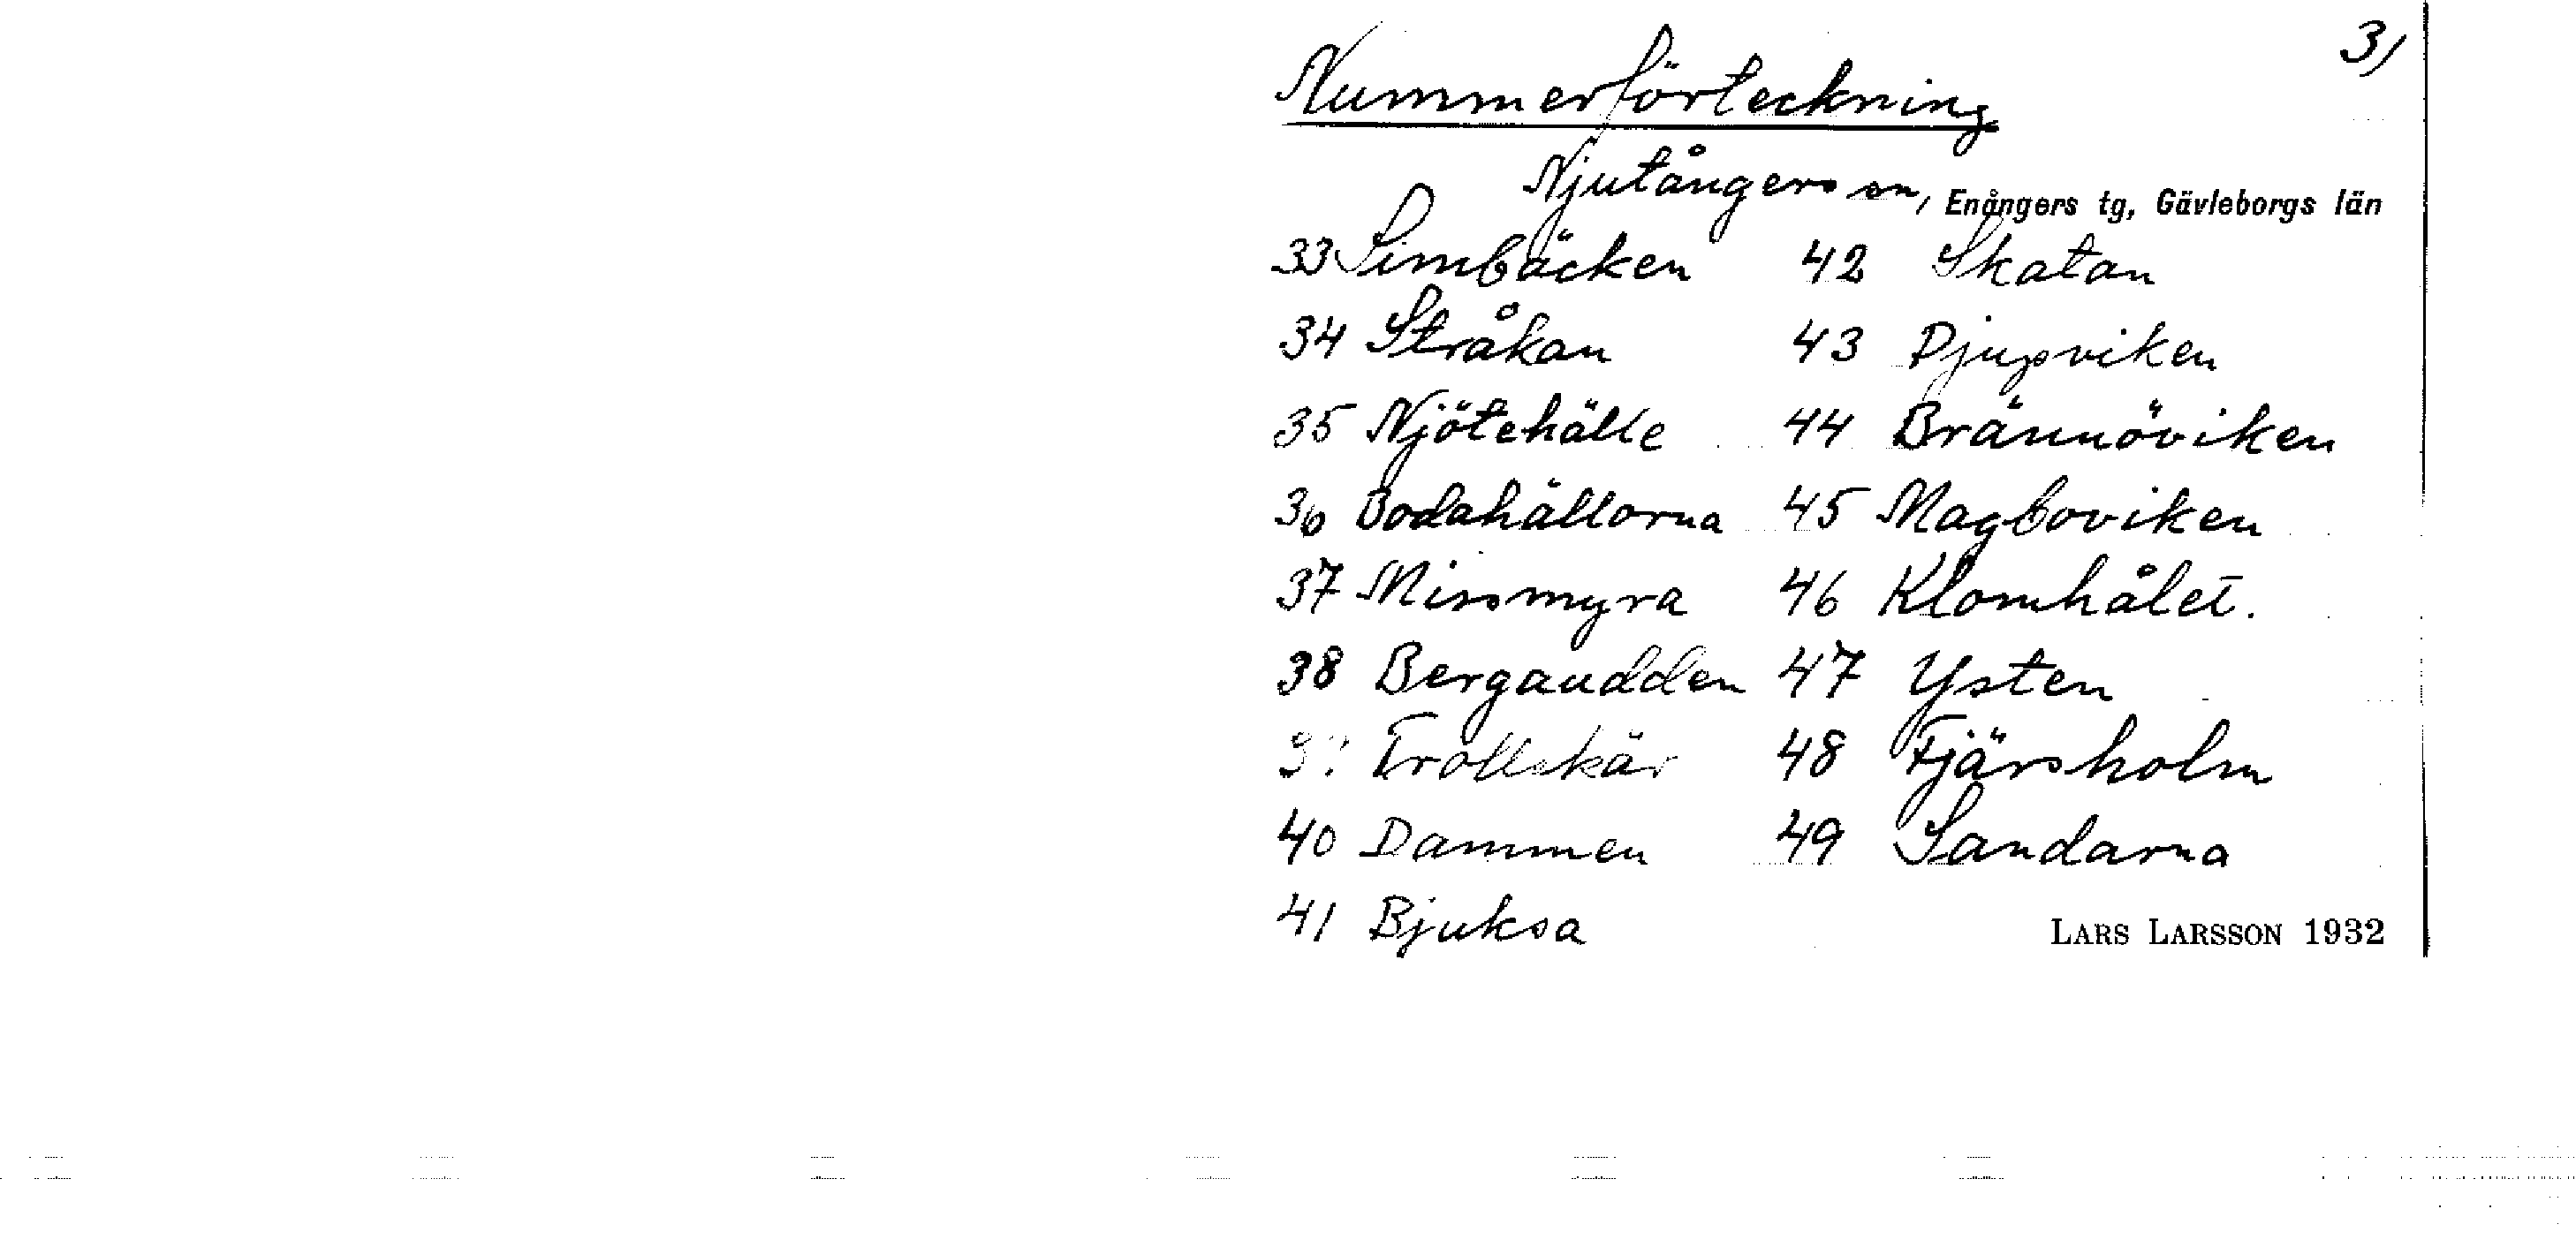 3)
Nummerförteckning
Njutångers sn, Enångers tg, Gävleborgs län
33 Simbäcken 42 Skatan
34 Stråkan 43 Djupviken
35 Njötehälle 44 Brännöviken
36 Bodahällorna 45 Magboviken
37 Missmyra 46 Klomhålet.
38 Bergaudden 47 Ysten
Trollskär 48 Fjärsholm
40 Dammen 49 Sandarna
41 Bjuksa
LARS LARSSON 1932